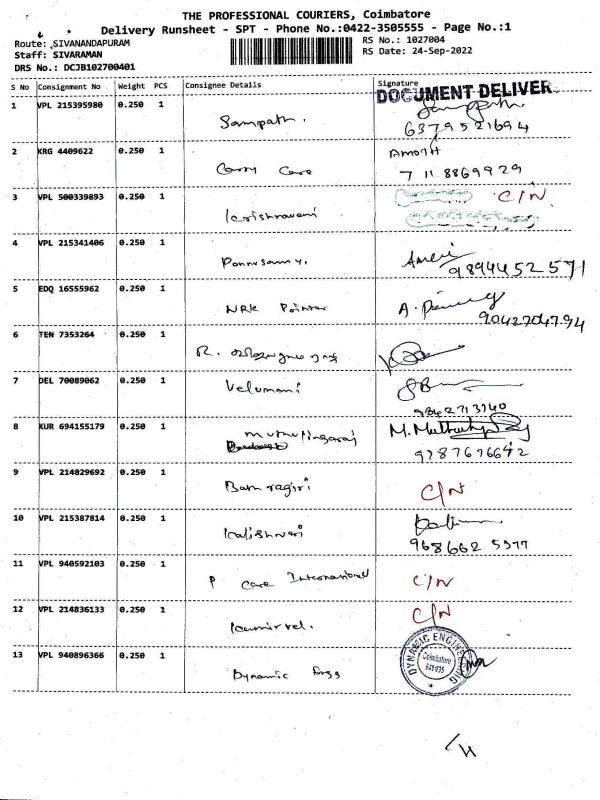 THE PROFESSIONAL COURIERS, Coimbatore
Delivery Runsheet - SPT - Phone No.:0422-3505555 - Page No.:1
Route: SIVANANDAPURAM
RS No.: 1027004
Staff: SIVARAMAN
RS Date: 24-Sep-2022
DRS No.: DCJB102700401
S No Consignment No Weight PCS Consignee Details Signature
DOCUMENT DELIVER
1 VPL 215395980 0.250 1 Sampath.
6379521694
2 KRG 4409622 0.250 1 Carry Care
7118869929
3 VPL 500339893 0.250 1 C/N
4 VPL 215341406 0.250 1 Ponnusamy.
9894452571
5 EDQ 16555962 0.250 1 NRK
9042704794
6 TEN 7353264 0.250 1 R.
7 DEL 70089062 0.250 1 Velumani
9842713140
8 KUR 694155179 0.250 1
9787676642
9 VPL 214829692 0.250 1 C/N
10 VPL 215387814 0.250 1
11 VPL 940592103 0.250 1 P Care International C/N
12 VPL 214836133 0.250 1 C/N
13 VPL 940896366 0.250 1 Dynamic Engg
DYNAMIC ENGINEERING
Coimbatore
641 035